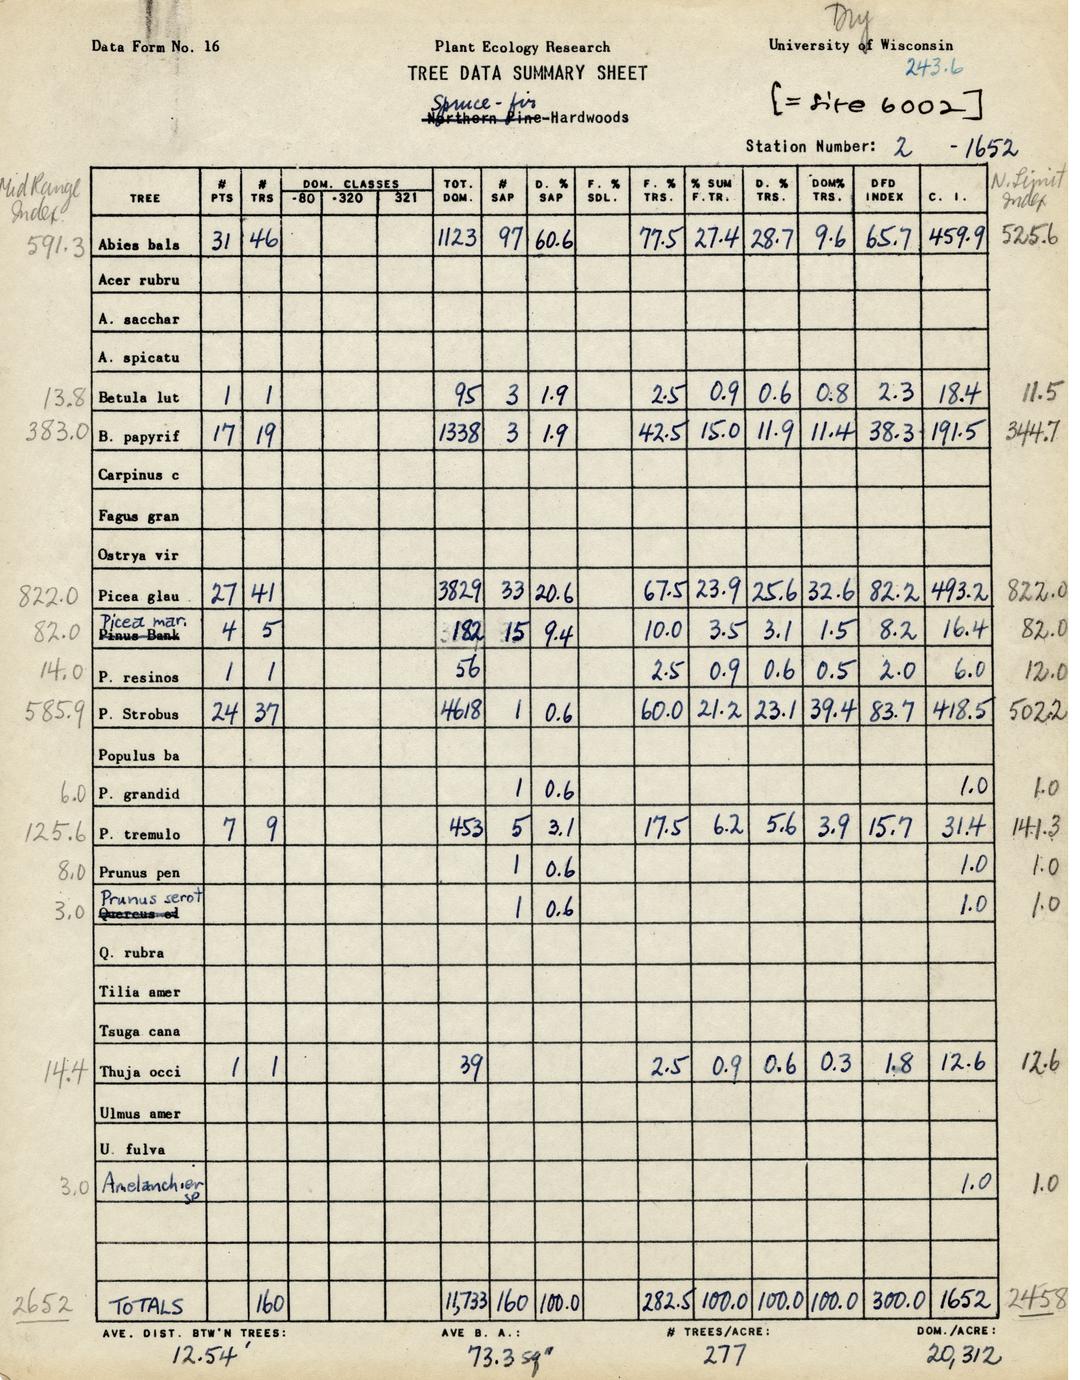 Dry
Data Form No. 16 Plant Ecology Research University of Wisconsin
TREE DATA SUMMARY SHEET 243.6
Spruce-fir [= site 6002]
Northern Pine-Hardwoods
Station Number: 2 -1652
Mid Range Index N. Limit Index
TREE # PTS # TRS DOM. CLASSES -80 -320 321 TOT. DOM. # SAP D. % SAP F. % SDL. F. % TRS. % SUM F.TR. D. % TRS. DOM% TRS. DFD INDEX C. I.
591.3 Abies bals 31 46 1123 97 60.6 77.5 27.4 28.7 9.6 65.7 459.9 525.6
Acer rubru
A. sacchar
A. spicatu
13.8 Betula lut 1 1 95 3 1.9 2.5 0.9 0.6 0.8 2.3 18.4 11.5
383.0 B. papyrif 17 19 1338 3 1.9 42.5 15.0 11.9 11.4 38.3 191.5 344.7
Carpinus c
Fagus gran
Ostrya vir
822.0 Picea glau 27 41 3829 33 20.6 67.5 23.9 25.6 32.6 82.2 493.2 822.0
Picea mar.
82.0 Pinus Bank 4 5 182 15 9.4 10.0 3.5 3.1 1.5 8.2 16.4 82.0
14.0 P. resinos 1 1 56 2.5 0.9 0.6 0.5 2.0 6.0 12.0
585.9 P. Strobus 24 37 4618 1 0.6 60.0 21.2 23.1 39.4 83.7 418.5 502.2
Populus ba
6.0 P. grandid 1 0.6 1.0 1.0
125.6 P. tremulo 7 9 453 5 3.1 17.5 6.2 5.6 3.9 15.7 31.4 141.3
8.0 Prunus pen 1 0.6 1.0 1.0
Prunus serot
3.0 Quercus el 1 0.6 1.0 1.0
Q. rubra
Tilia amer
Tsuga cana
14.4 Thuja occi 1 1 39 2.5 0.9 0.6 0.3 1.8 12.6 12.6
Ulmus amer
U. fulva
3.0 Amelanchier sp 1.0 1.0
2652 TOTALS 160 11,733 160 100.0 282.5 100.0 100.0 100.0 300.0 1652 2458
AVE. DIST. BTW'N TREES: AVE B. A.: # TREES/ACRE: DOM./ACRE:
12.54' 73.3 sq" 277 20,312